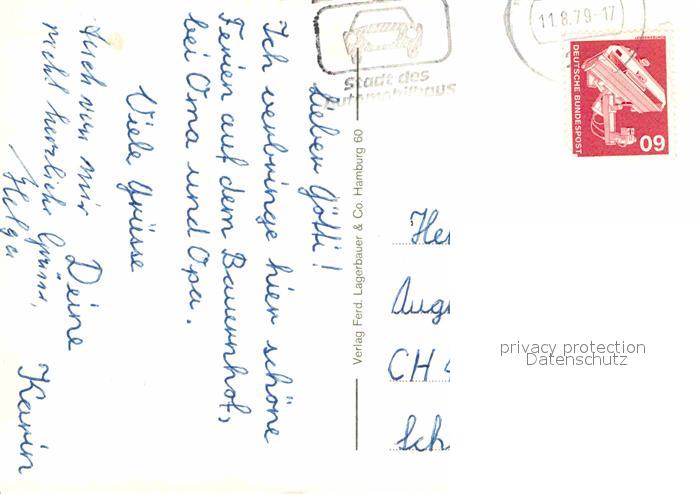 Lieben Götti!
Ich verbringe hier schöne
Ferien auf dem Bauernhof,
bei Oma und Opa.
Viele Grüsse
Deine
Karin
Auch von mir
recht herzliche Grüsse,
Helga
Verlag Ferd. Lagerbauer & Co. Hamburg 60
Stadt des
Automobilbaus
11.8.79-17
DEUTSCHE BUNDESPOST
60
Her
Aug
CH 4
Sch
privacy protection
Datenschutz